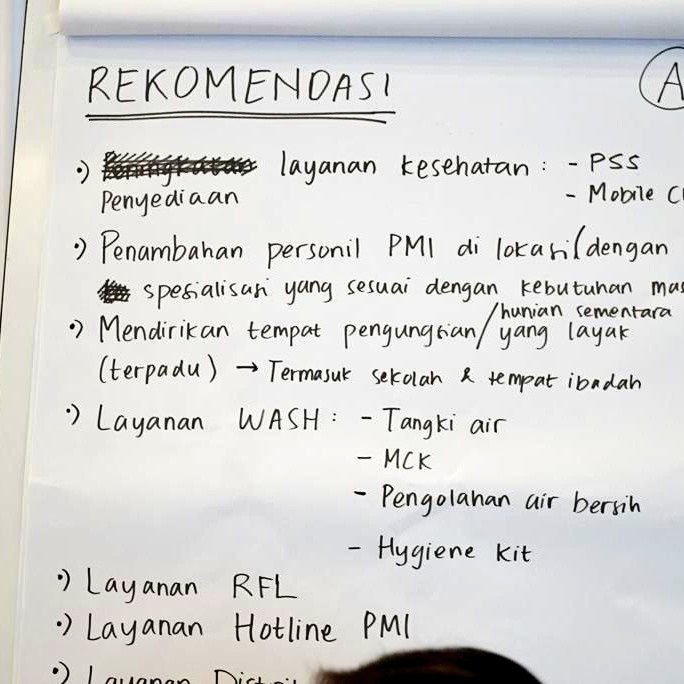 REKOMENDASI
A
•) layanan kesehatan : - PSS
Penyediaan - Mobile
•) Penambahan personil PMI di lokasi (dengan
spesialisasi yang sesuai dengan kebutuhan
/hunian sementara
•) Mendirikan tempat pengungsian/yang layak
(terpadu) → Termasuk sekolah & tempat ibadah
•) Layanan WASH : - Tangki air
- MCK
- Pengolahan air bersih
- Hygiene kit
•) Layanan RFL
•) Layanan Hotline PMI
•) Layanan